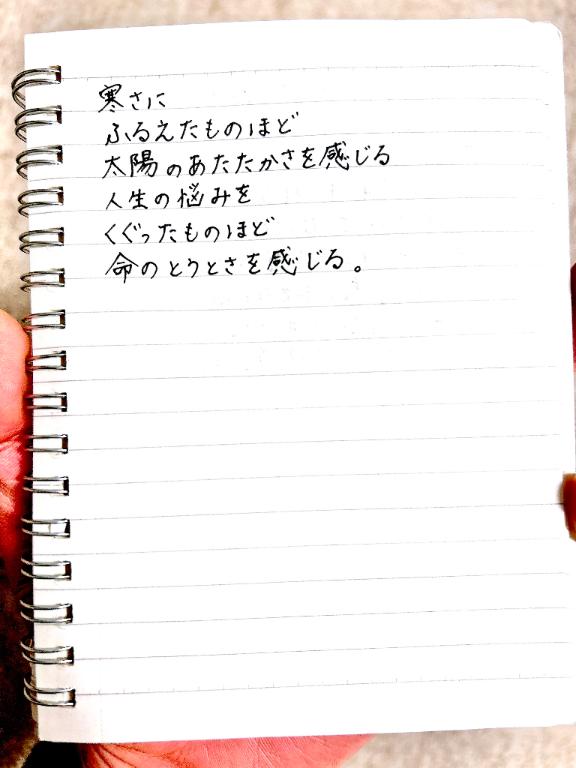 寒さに
ふるえたものほど
太陽のあたたかさを感じる
人生の悩みを
くぐったものほど
命のとうとさを感じる。